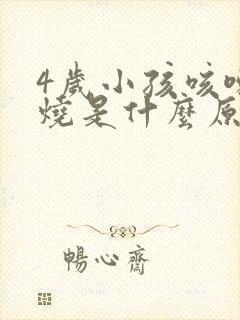 4歲小孩咳
燒是什麼原
暢心齋